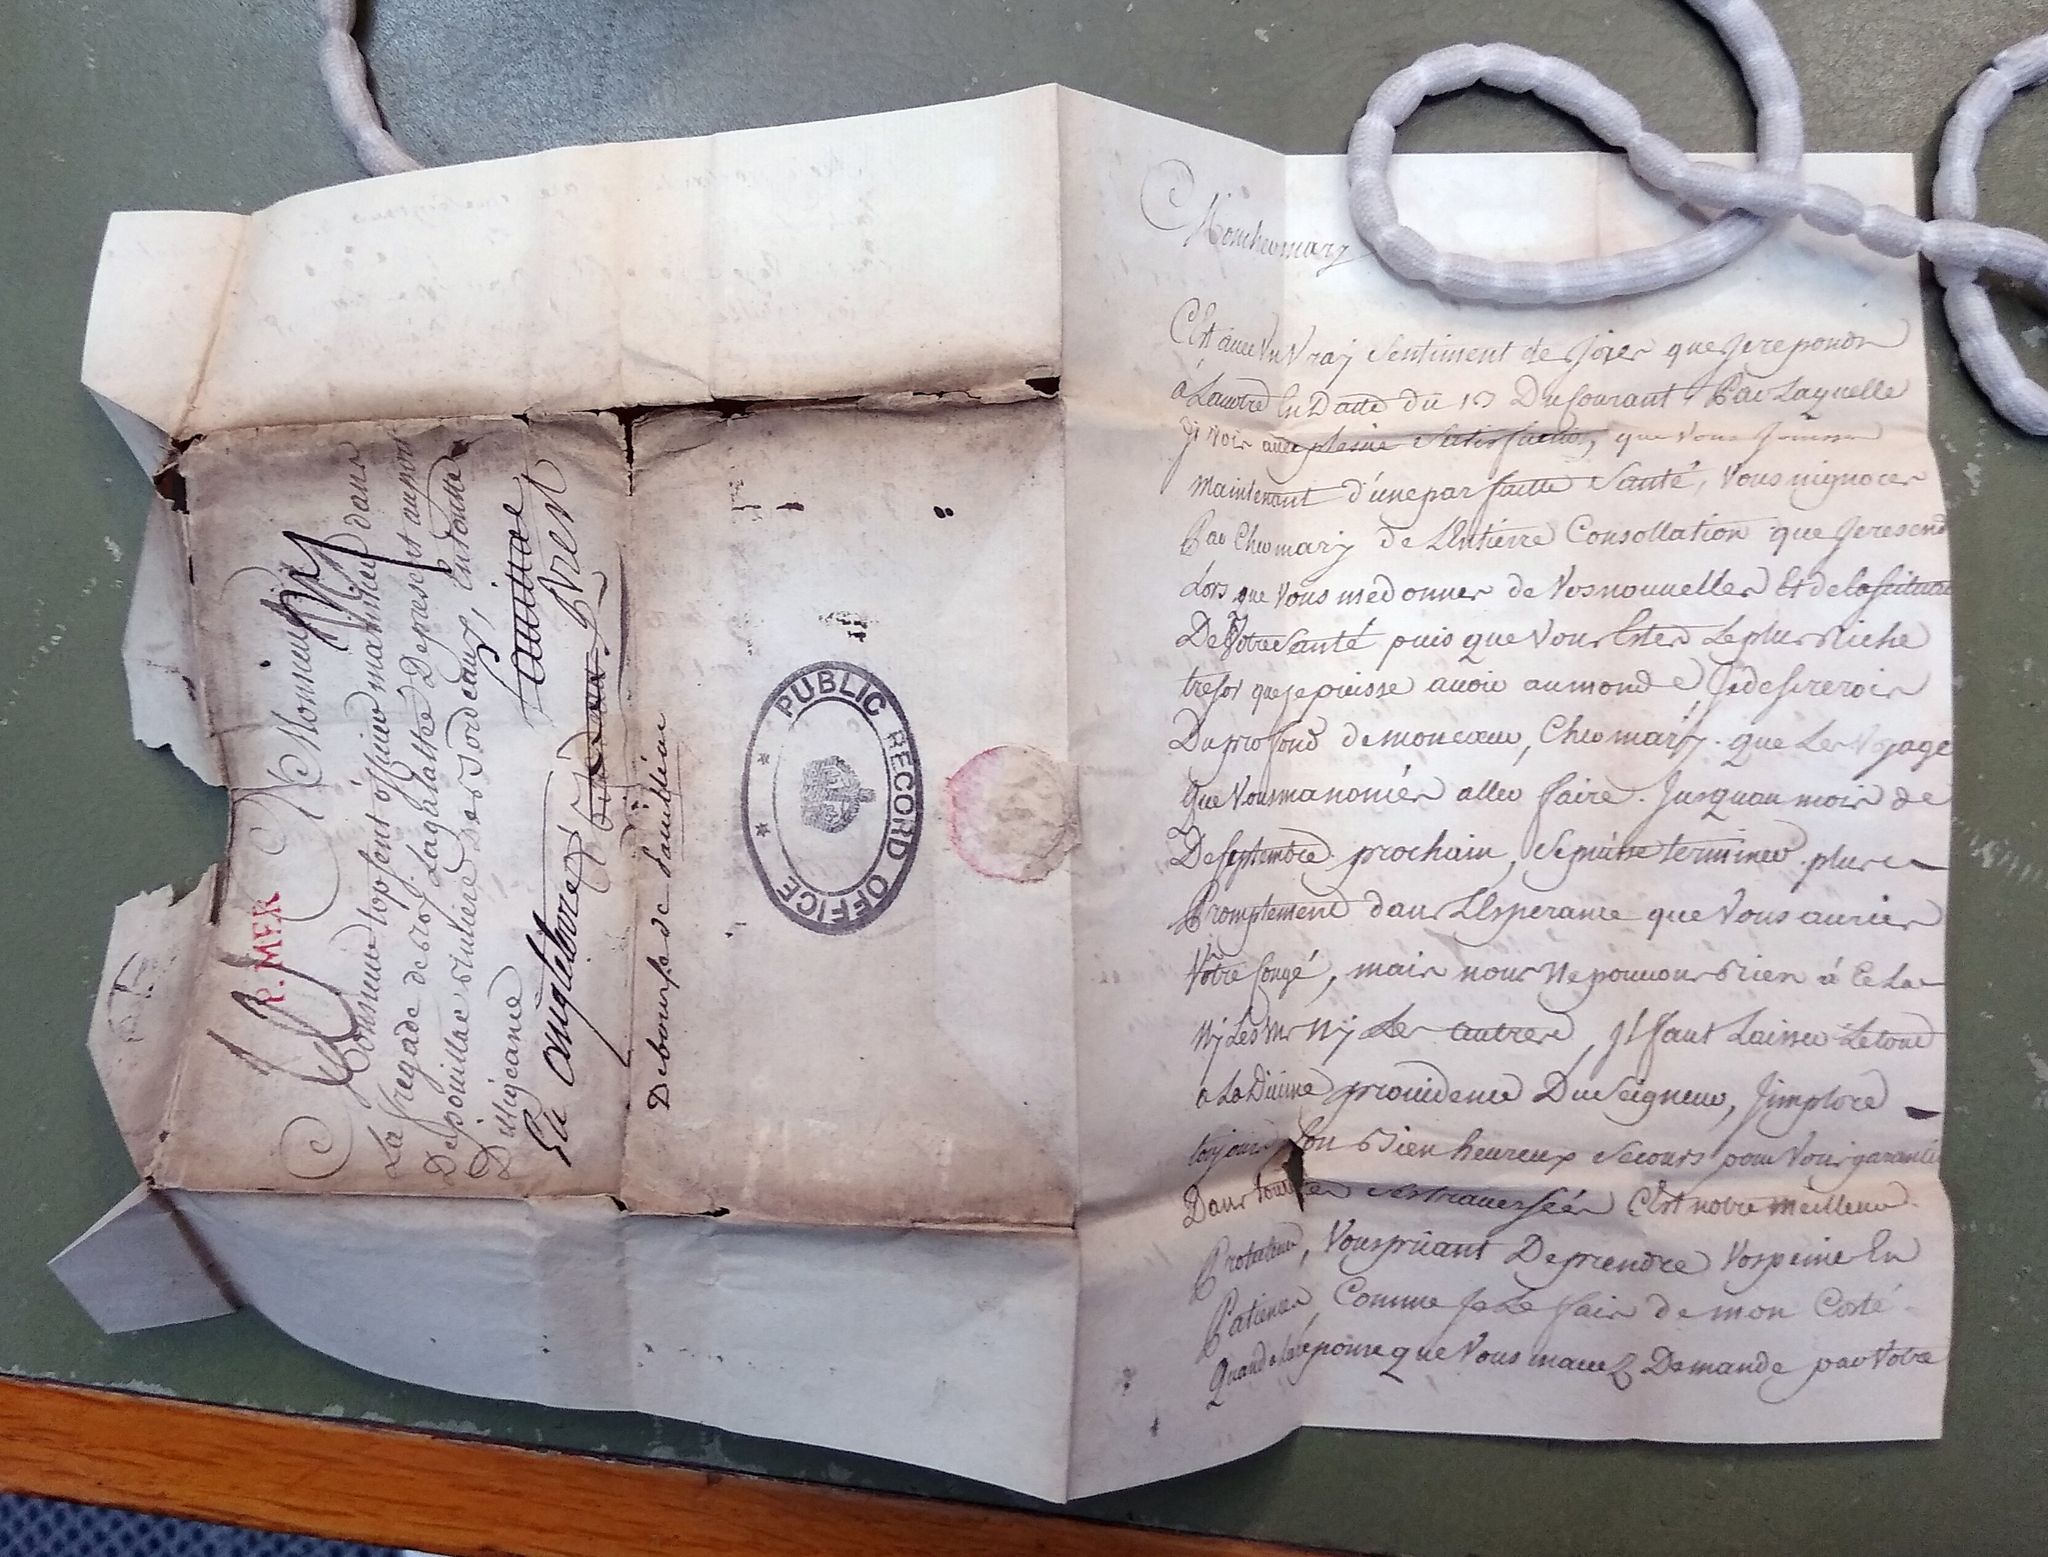 Monsieur
Monsieur topsent officier marinier dans
La fregade du roy Lagalattée De present auport
Depouillac riviere de Bordeaux, entoutte
Dilligeance
Pauillac
Brest
Bordeaux
En angleterre
P. MER
Deboursé de Pauilléac
PUBLIC RECORD OFFICE
Moncher mary
C'est avec Un Vray sentiment de joies que Je repond
a Lavotre En Datte du 13 Du Courant, Par Laquelle
Je vois avec pleine Satisfaction, que vous Jouisse
maintenant d'une parfaitte Santé, Vous nignores
Pas Cher mary de L'Entierre Consollation que Je resend
Lors que Vous me donner de Vos nouvelles Et de la
De Votre Santé puis que Vous Estes Le plus Riche
tresor que je puisse avoir au monde, Je desirerois
Du profond de mon cœur, Cher mary. que Les Voyage
que Vous manonces aller faire. Jusquau mois de
De Septembre prochain, se puisse terminer. plus
Promptement dans L'Esperance que Vous auries
Votre Congé, mais nous Ne pouvons Rien à Ce La
Ny Les Uns Ny Les autres, Il faut Laisser Le tout
a La Divine providence Du Seigneur, J'implore
toujours Son Bien heureux Secours pour Vous garantir
Dans toutes Ses traversées C'est notre meilleur
Protecteur, Vous priant De prendre Vos peine En
Patience, Comme Je Le fais de mon Costé
Quand a la reponse que Vous mavez Demande par Votre